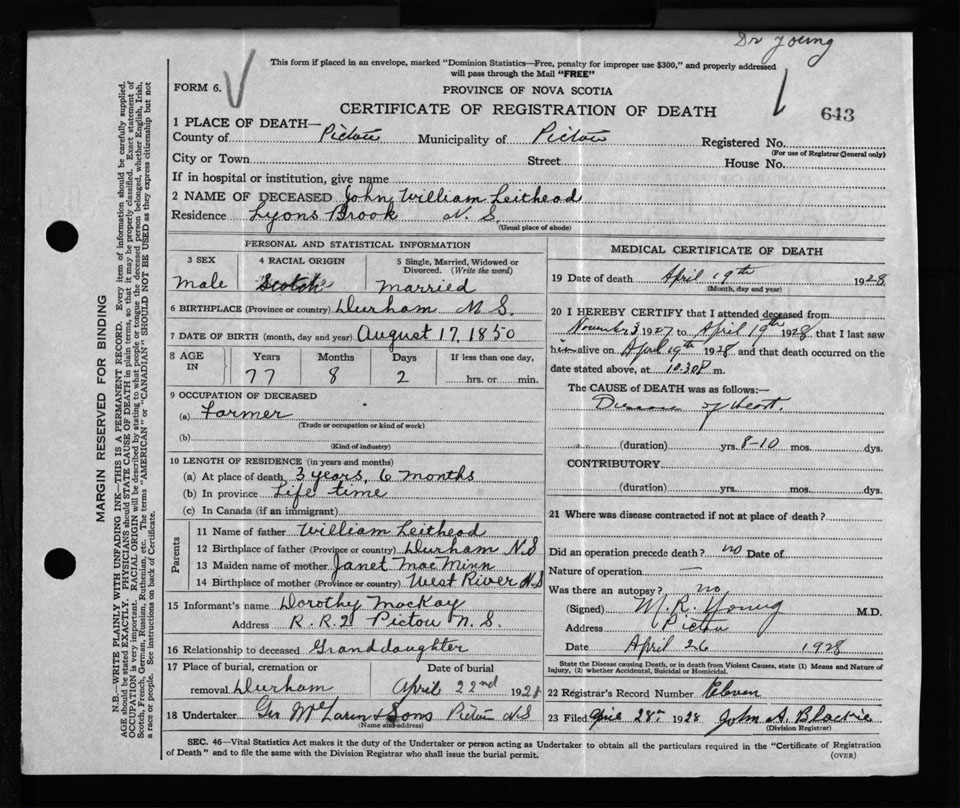 Dr Young
This form if placed in an envelope, marked "Dominion Statistics—Free, penalty for improper use $300," and properly addressed
will pass through the Mail "FREE"
FORM 6.
PROVINCE OF NOVA SCOTIA
CERTIFICATE OF REGISTRATION OF DEATH
643
1 PLACE OF DEATH—
County of Pictou Municipality of Pictou Registered No.
(For use of Registrar General only)
City or Town Street House No.
If in hospital or institution, give name
2 NAME OF DECEASED John William Leithead
Residence Lyons Brook N. S.
(Usual place of abode)
PERSONAL AND STATISTICAL INFORMATION
3 SEX 4 RACIAL ORIGIN 5 Single, Married, Widowed or
Divorced. (Write the word)
male Scotch married
6 BIRTHPLACE (Province or country) Durham N S.
7 DATE OF BIRTH (month, day and year) August 17, 1850
8 AGE IN Years Months Days If less than one day,
77 8 2 hrs. or min.
9 OCCUPATION OF DECEASED
(a) Farmer
(Trade or occupation or kind of work)
(b)
(Kind of industry)
10 LENGTH OF RESIDENCE (in years and months)
(a) At place of death 3 years, 6 months
(b) In province Life time
(c) In Canada (if an immigrant)
Parents
11 Name of father William Leithead
12 Birthplace of father (Province or country) Durham N.S
13 Maiden name of mother Janet MacMinn
14 Birthplace of mother (Province or country) West River N.S
15 Informant's name Dorothy MacKay
Address R.R.2 Pictou N. S.
16 Relationship to deceased Granddaughter
17 Place of burial, cremation or Date of burial
removal Durham April 22nd 1928
18 Undertaker Geo McLaren & Sons Pictou N S
(Name and address)
MEDICAL CERTIFICATE OF DEATH
19 Date of death April 19th 1928
(Month, day and year)
20 I HEREBY CERTIFY that I attended deceased from
November 3 1927 to April 19th 1928 that I last saw
him alive on April 19th 1928 and that death occurred on the
date stated above, at 10.30 m.
The CAUSE OF DEATH was as follows:—
Disease of Heart.
(duration) yrs. 8-10 mos. dys.
CONTRIBUTORY
(duration) yrs. mos. dys.
21 Where was disease contracted if not at place of death?
Did an operation precede death? no Date of
Nature of operation —
Was there an autopsy? no
(Signed) M. R. Young M.D.
Address Pictou
Date April 26 1928
State the Disease causing Death, or in death from Violent Causes, state (1) Means and Nature of
Injury, (2) whether Accidental, Suicidal or Homicidal.
22 Registrar's Record Number Eleven
23 Filed April 28th 1928 John A. Blackie
(Division Registrar)
SEC. 46—Vital Statistics Act makes it the duty of the Undertaker or person acting as Undertaker to obtain all the particulars required in the "Certificate of Registration
of Death" and to file the same with the Division Registrar who shall issue the burial permit.
(OVER)
MARGIN RESERVED FOR BINDING
N.B.—WRITE PLAINLY WITH UNFADING INK—THIS IS A PERMANENT RECORD. Every item of information should be carefully supplied.
AGE should be stated EXACTLY. PHYSICIANS should STATE CAUSE OF DEATH in plain terms, that it may be properly classified. Exact statement of
OCCUPATION is very important. RACIAL ORIGIN will be described by stating to what people or tongue the deceased person belonged, whether English, Irish,
Scotch, French, German, Russian, Ruthenian, etc. The terms "AMERICAN" or "CANADIAN" SHOULD NOT BE USED as they express citizenship but not
a race or people. See instructions on back of Certificate.